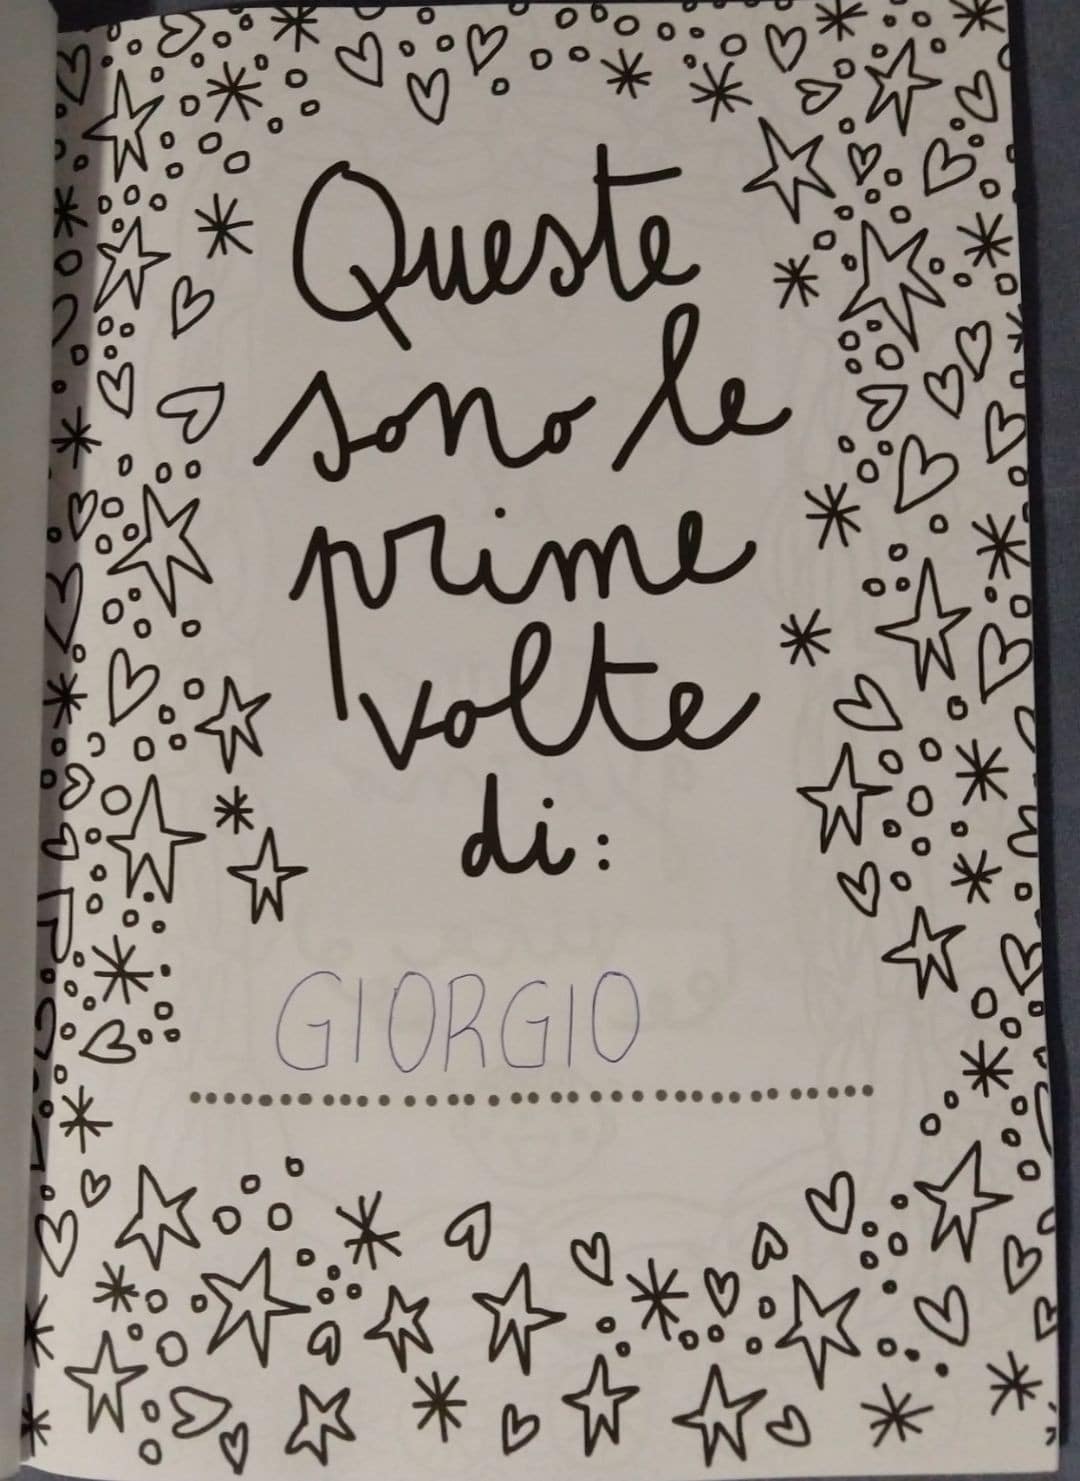 Queste
sono le
prime
volte
di:
GIORGIO